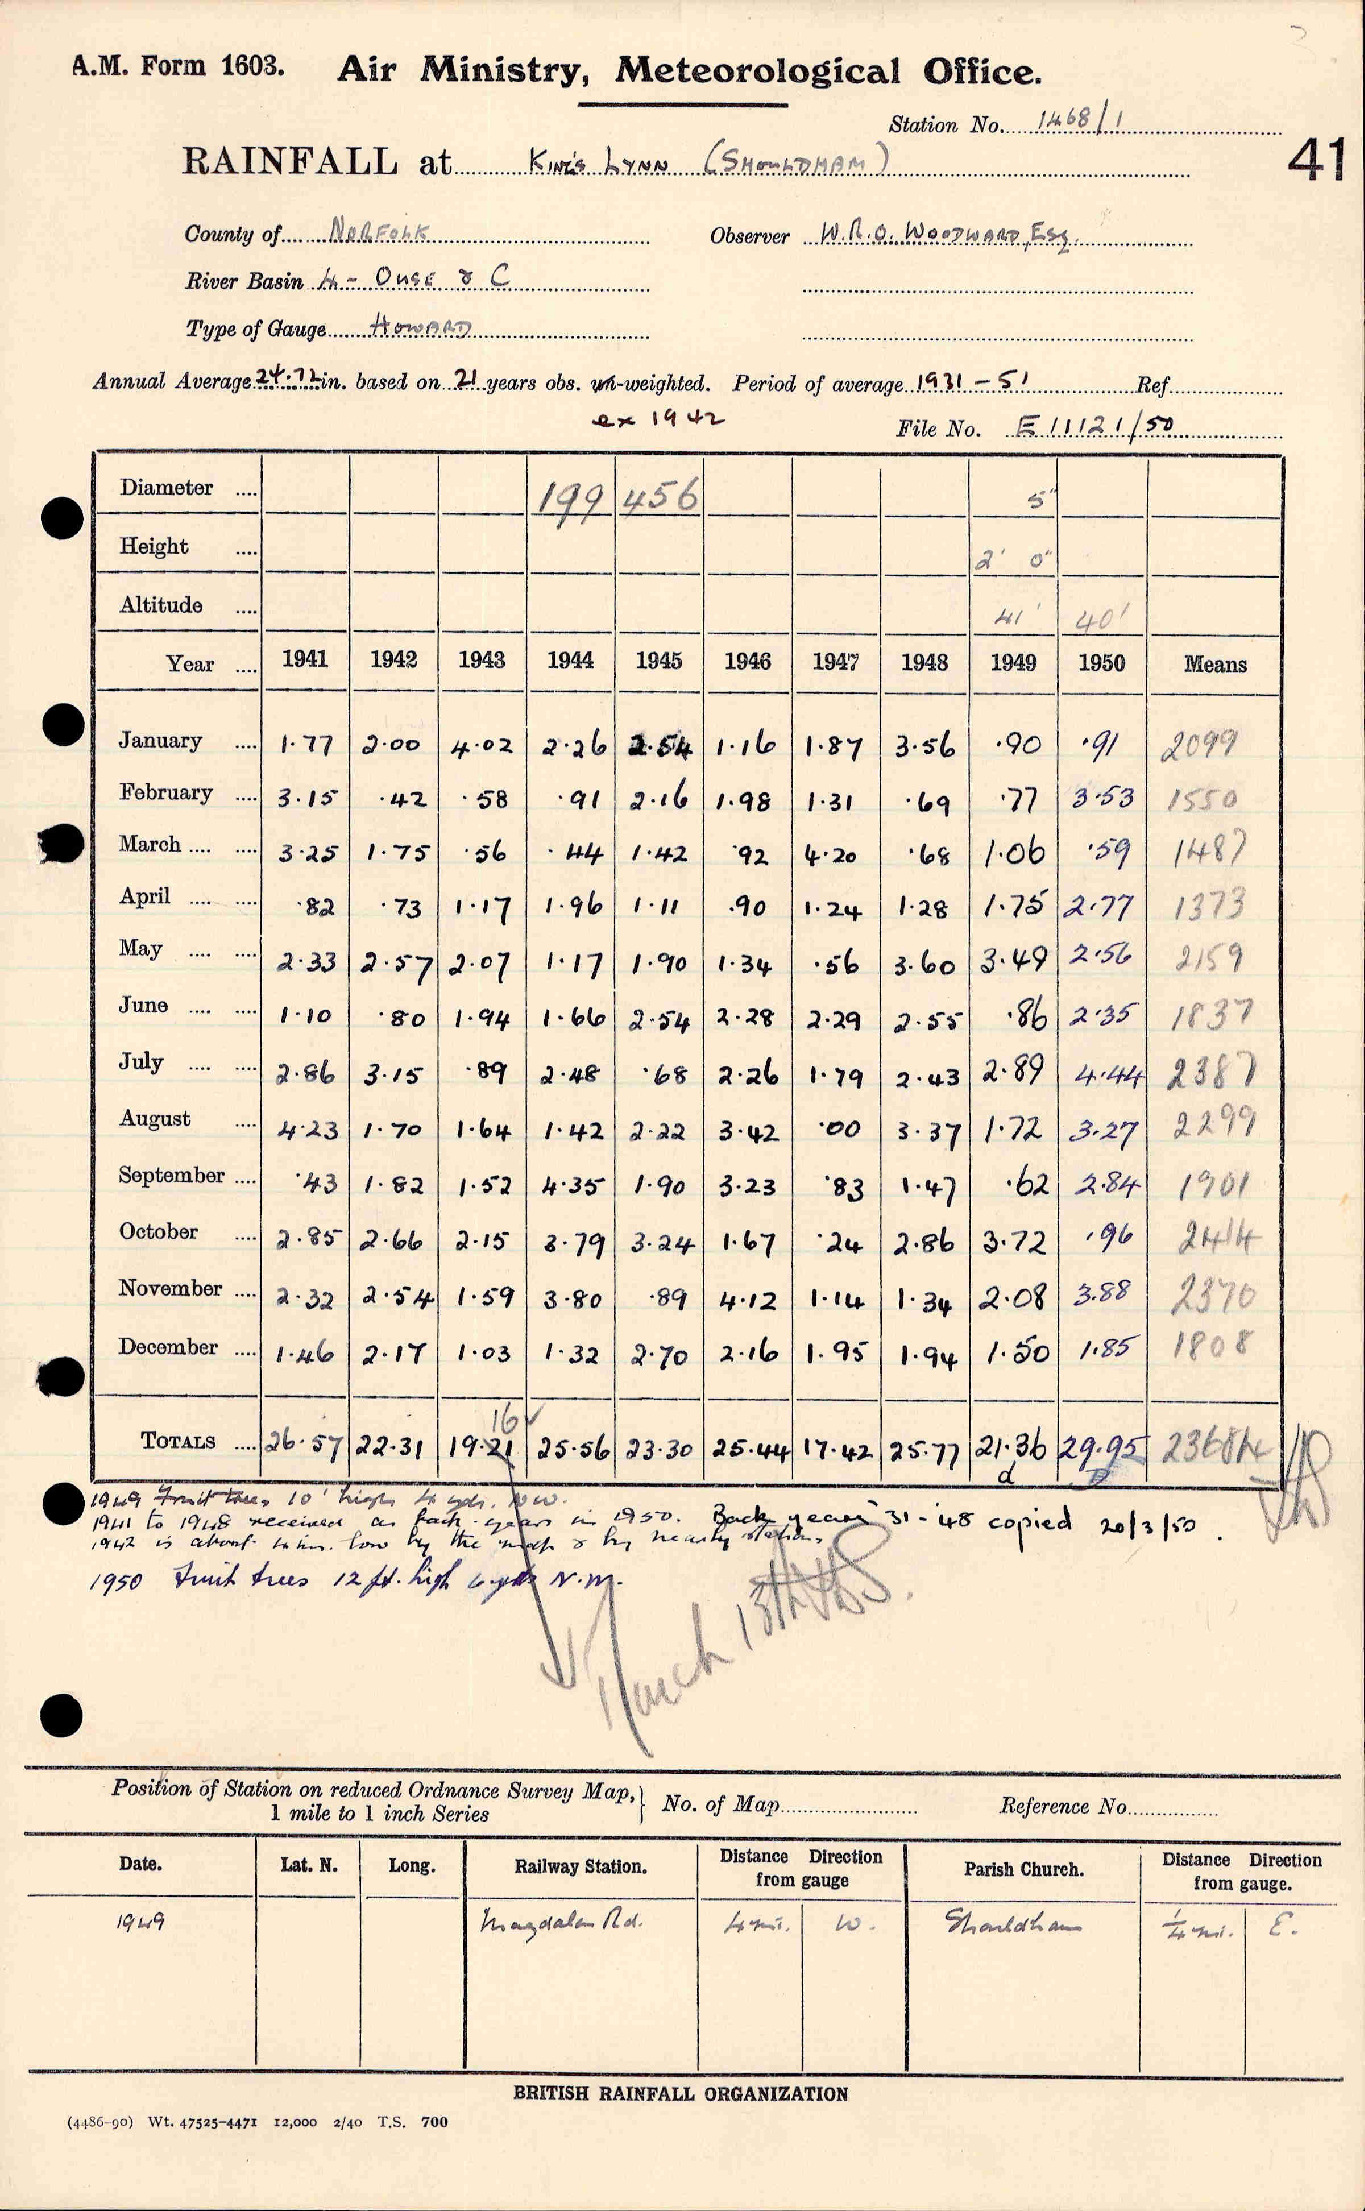 A.M. Form 1603. Air Ministry, Meteorological Office.
Station No. 1468/1
41
RAINFALL at King's Lynn (Shouldham)
County of Norfolk Observer W.R.O. Woodward, Esq.
River Basin 4 - Ouse & C
Type of Gauge Howard
Annual Average 24.72 in. based on 21 years obs. un-weighted. Period of average 1931 - 51 Ref
ex 1942 File No. E 11121/50
Diameter .... 199 456 5"
Height .... 2' 0"
Altitude .... 41' 40'
Year .... 1941 1942 1943 1944 1945 1946 1947 1948 1949 1950 Means
January .... 1.77 2.00 4.02 2.26 2.54 1.16 1.87 3.56 .90 .91 2099
February .... 3.15 .42 .58 .91 2.16 1.98 1.31 .69 .77 3.53 1550
March .... .... 3.25 1.75 .56 .44 1.42 .92 4.20 .68 1.06 .59 1487
April .... .... .82 .73 1.17 1.96 1.11 .90 1.24 1.28 1.75 2.77 1373
May .... .... 2.33 2.57 2.07 1.17 1.90 1.34 .56 3.60 3.49 2.56 2159
June .... .... 1.10 .80 1.94 1.66 2.54 2.28 2.29 2.55 .86 2.35 1837
July .... .... 2.86 3.15 .89 2.48 .68 2.26 1.79 2.43 2.89 4.44 2387
August .... 4.23 1.70 1.64 1.42 2.22 3.42 .00 3.37 1.72 3.27 2299
September .... .43 1.82 1.52 4.35 1.90 3.23 .83 1.47 .62 2.84 1901
October .... 2.85 2.66 2.15 3.79 3.24 1.67 .24 2.86 3.72 .96 2414
November .... 2.32 2.54 1.59 3.80 .89 4.12 1.14 1.34 2.08 3.88 2370
December .... 1.46 2.17 1.03 1.32 2.70 2.16 1.95 1.94 1.50 1.85 1808
16
TOTALS .... 26.57 22.31 19.21 25.56 23.30 25.44 17.42 25.77 21.36 29.95 23684
d
1949 Fruit trees 10' high 4 yds. NW.
1941 to 1948 received as back years in 1950. Back years '31 - '48 copied 20/3/50.
1942 is about low by the map & by nearby stations
1950 Fruit trees 12 ft. high 6 yds N.W.
March 13th
Position of Station on reduced Ordnance Survey Map, 1 mile to 1 inch Series No. of Map Reference No.
Date. Lat. N. Long. Railway Station. Distance Direction from gauge Parish Church. Distance Direction from gauge.
1949 Magdalen Rd. 4 mi. W. Shouldham 1/4 mi. E.
BRITISH RAINFALL ORGANIZATION
(4486-90) Wt. 47525-4471 12,000 2/40 T.S. 700